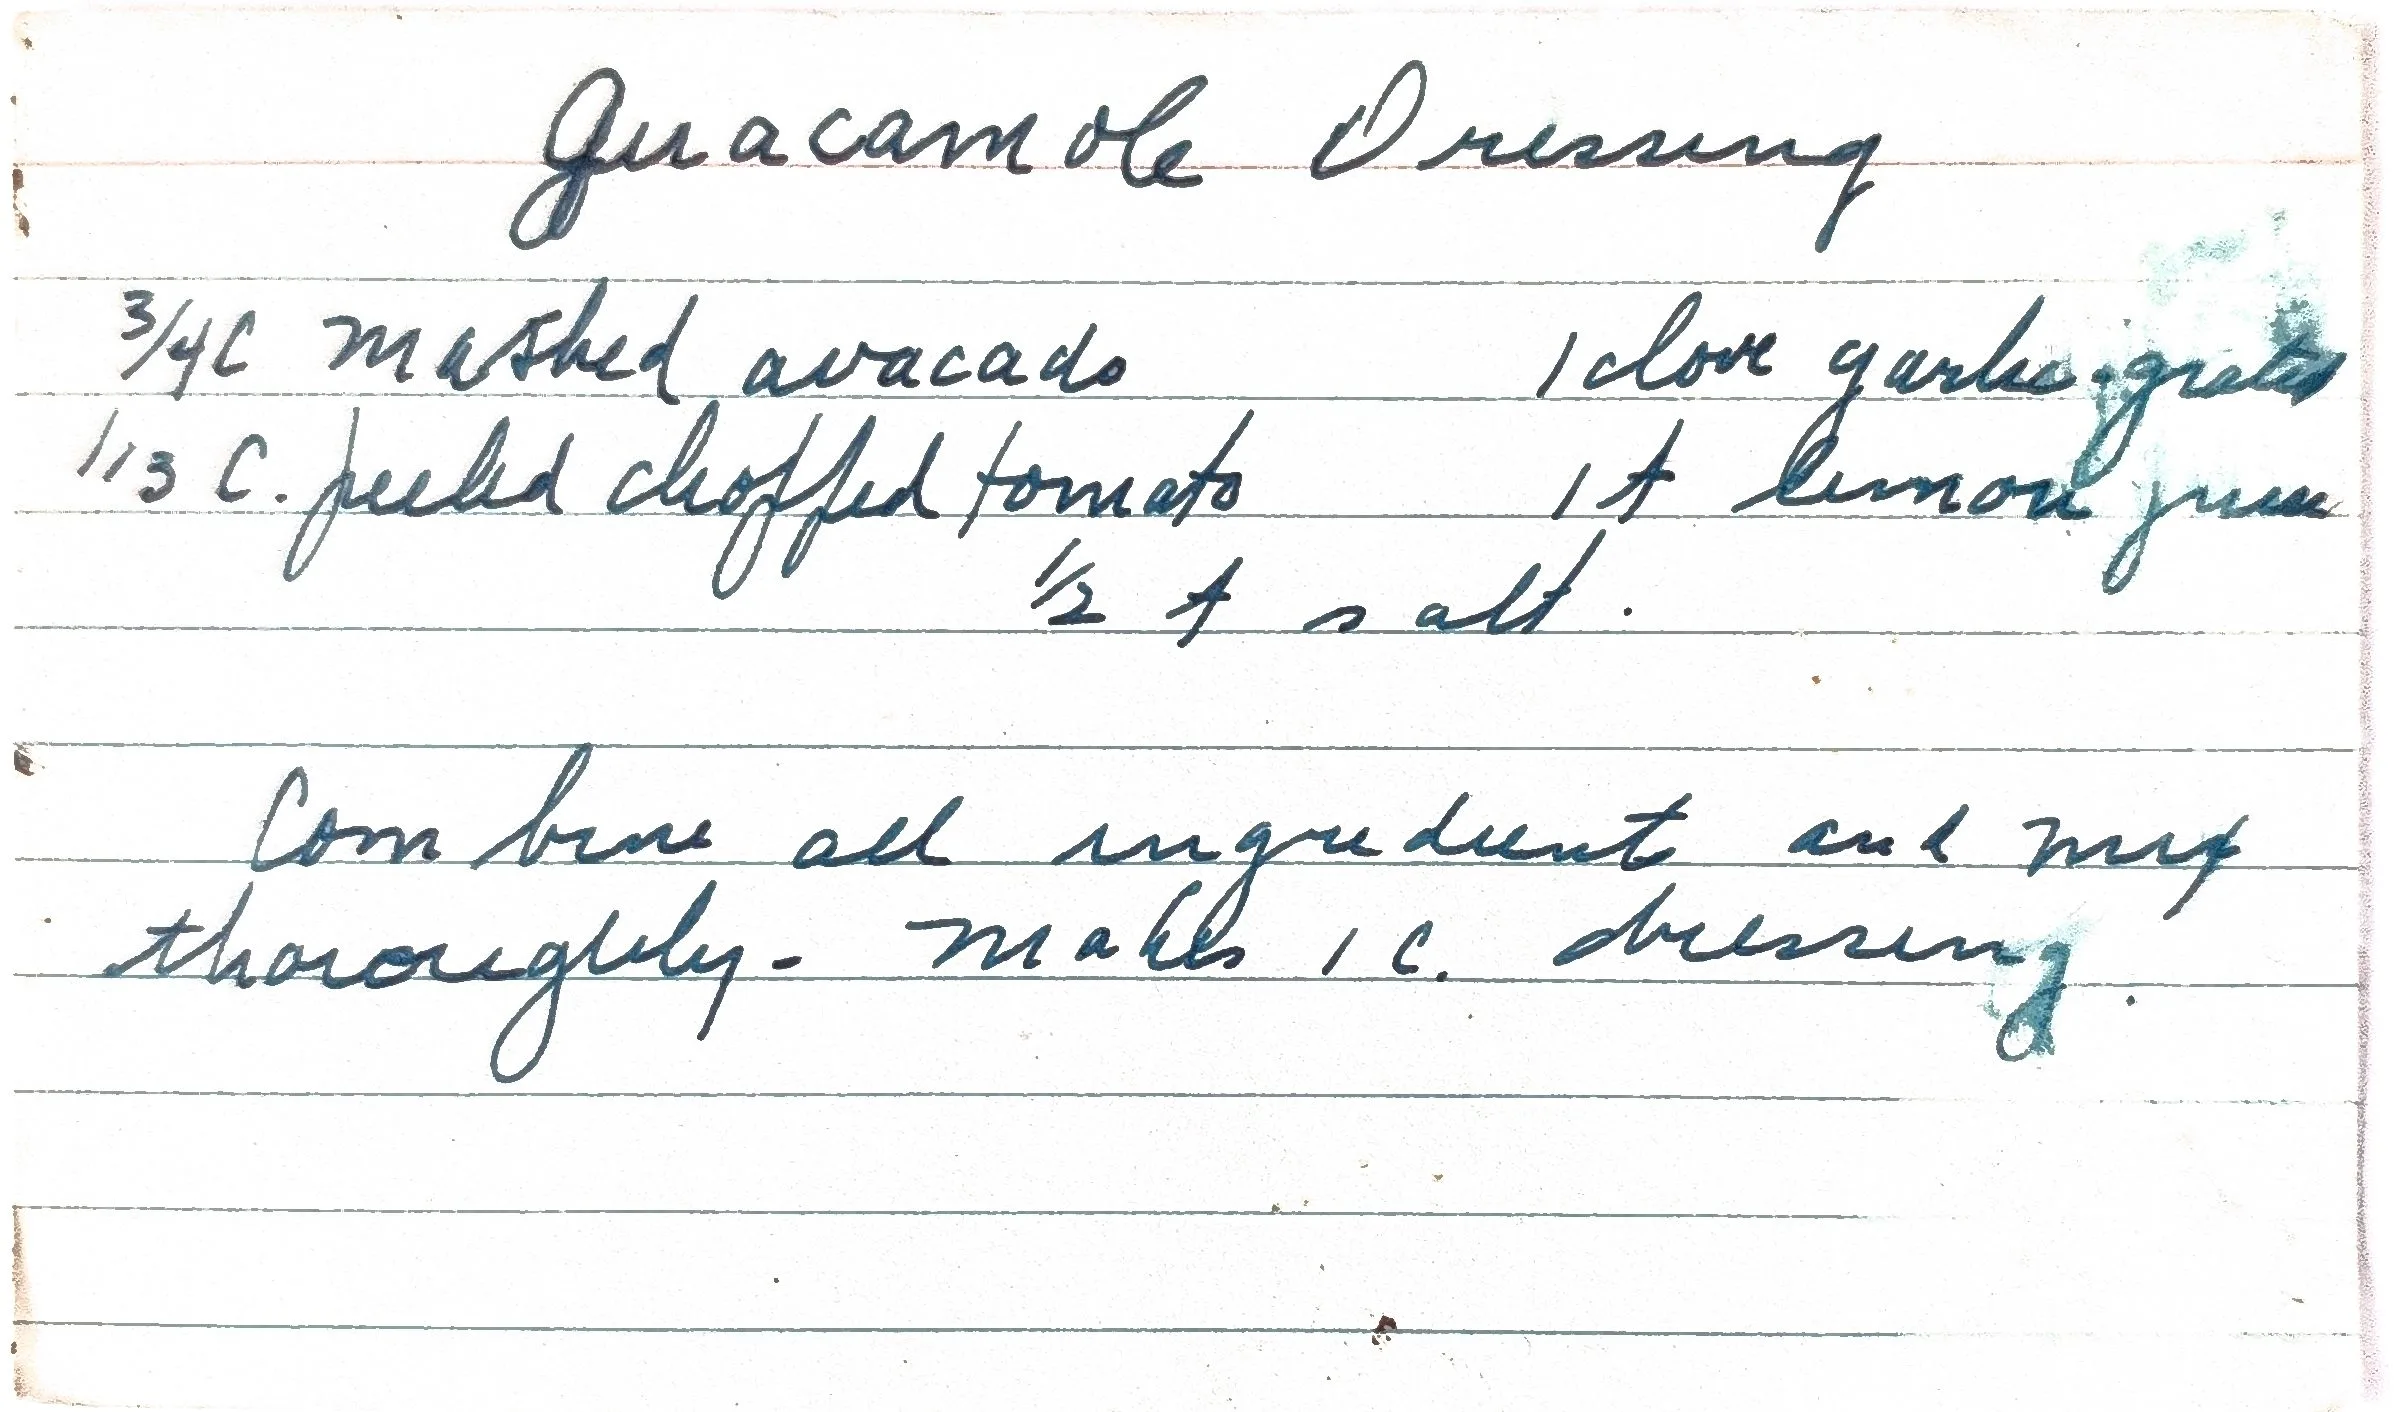 Guacamole Dressing
3/4 C mashed avacado 1 clove garlic-grated
1/3 C. peeled chopped tomato 1 t lemon juice
1/2 t salt.
Combine all ingredient and mix
thoroughly - makes 1 c. dressing.